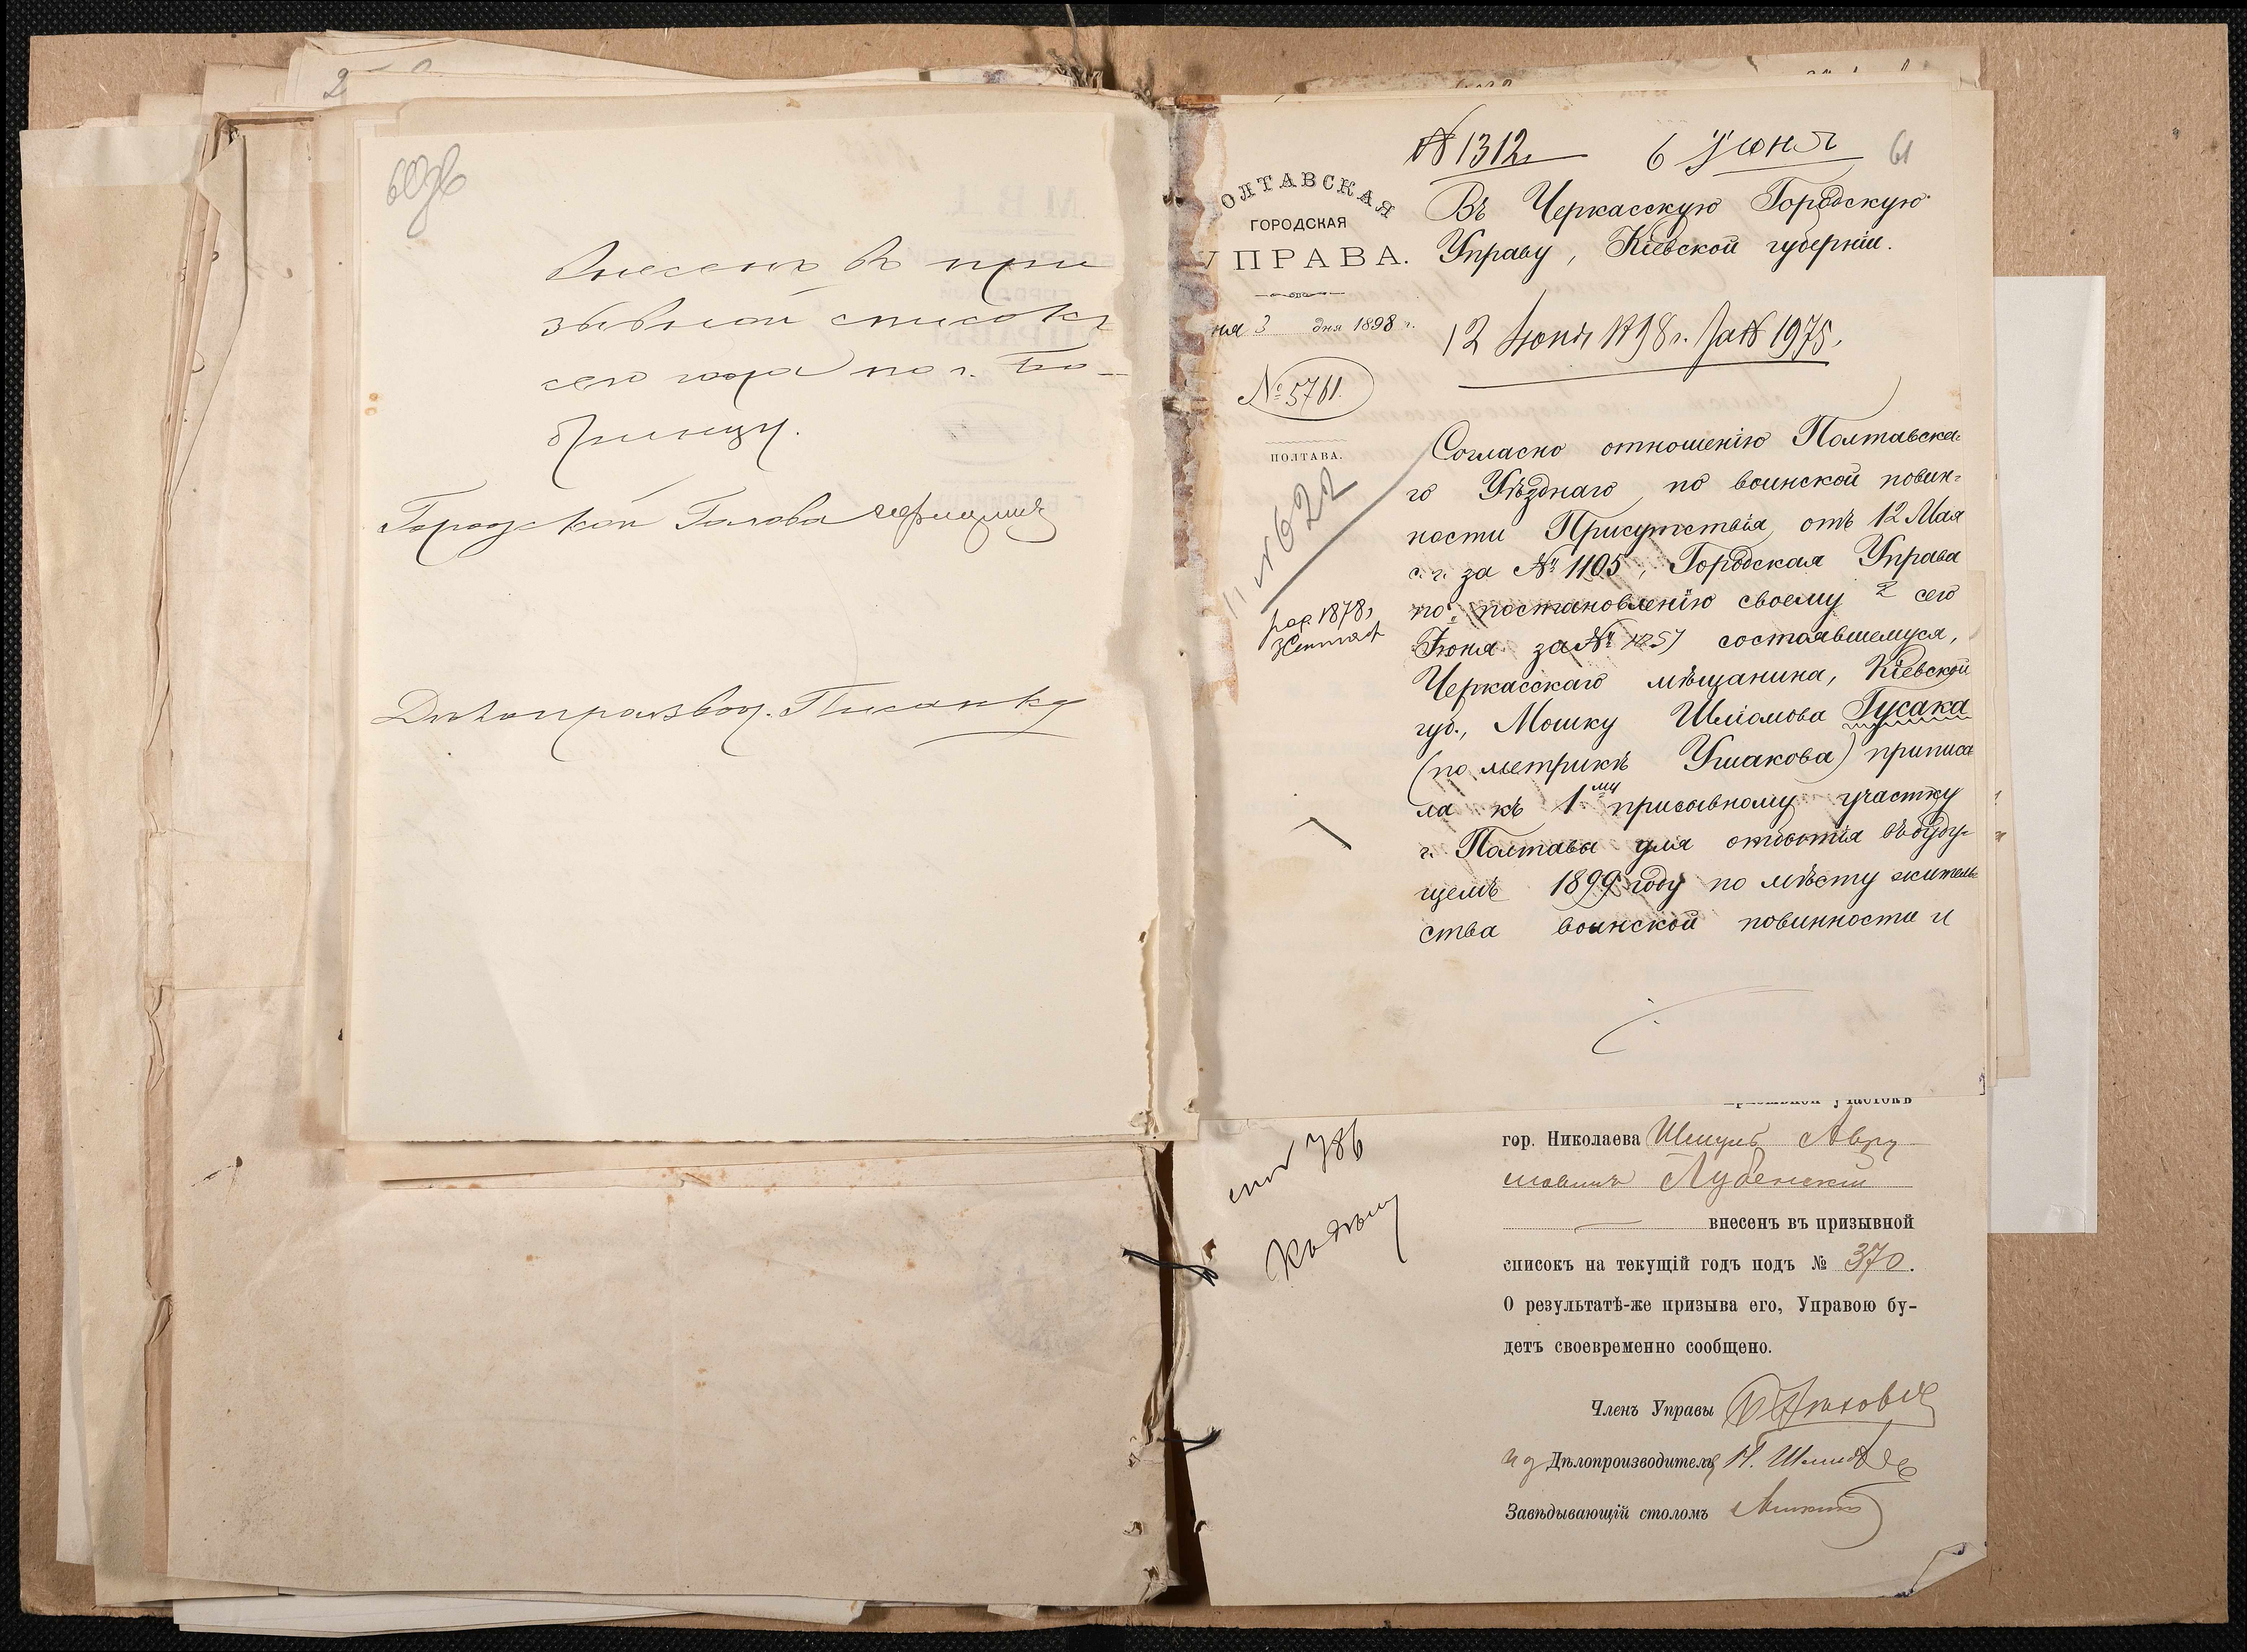 60об
Внесенъ въ при
зывной списокъ
сего года по г. Бо-
бринцу.
Городской Голова
Дѣлопроизвод. Писанко
№ 1312 6 Іюня 61
ОЛТАВСКАЯ
ГОРОДСКАЯ
УПРАВА.
ня 3 дня 1898 г.
№ 5761.
ПОЛТАВА.
№ 622
род. 1878,
Въ Черкасскую Городскую
Управу, Кіевской губерніи.
12 Іюня 1898 г. За № 1975.
Согласно отношенію Полтавска-
го Уѣзднаго по воинской повин-
ности Присутствія отъ 12 Мая
с. г. за № 1105, Городская Управа
по постановленію своему 2 сего
Іюня за № состоявшемуся,
Черкасскаго мѣщанина, Кіевской
губ., Мошку Шліомова Гусака
(по метрикѣ Ушакова) приписа
ла къ 1му призывному участку
г. Полтавы для отбытія въ буду-
щемъ 1899 году по мѣсту житель
ства воинской повинности и
786
призывной участокъ
гор. Николаева Шмуль Авру
мовичъ Лубенскій
внесенъ въ призывной
списокъ на текущій годъ подъ № 370.
О результатѣ-же призыва его, Управою бу-
детъ своевременно сообщено.
Членъ Управы
И д Дѣлопроизводителя Н.
Завѣдывающій столомъ